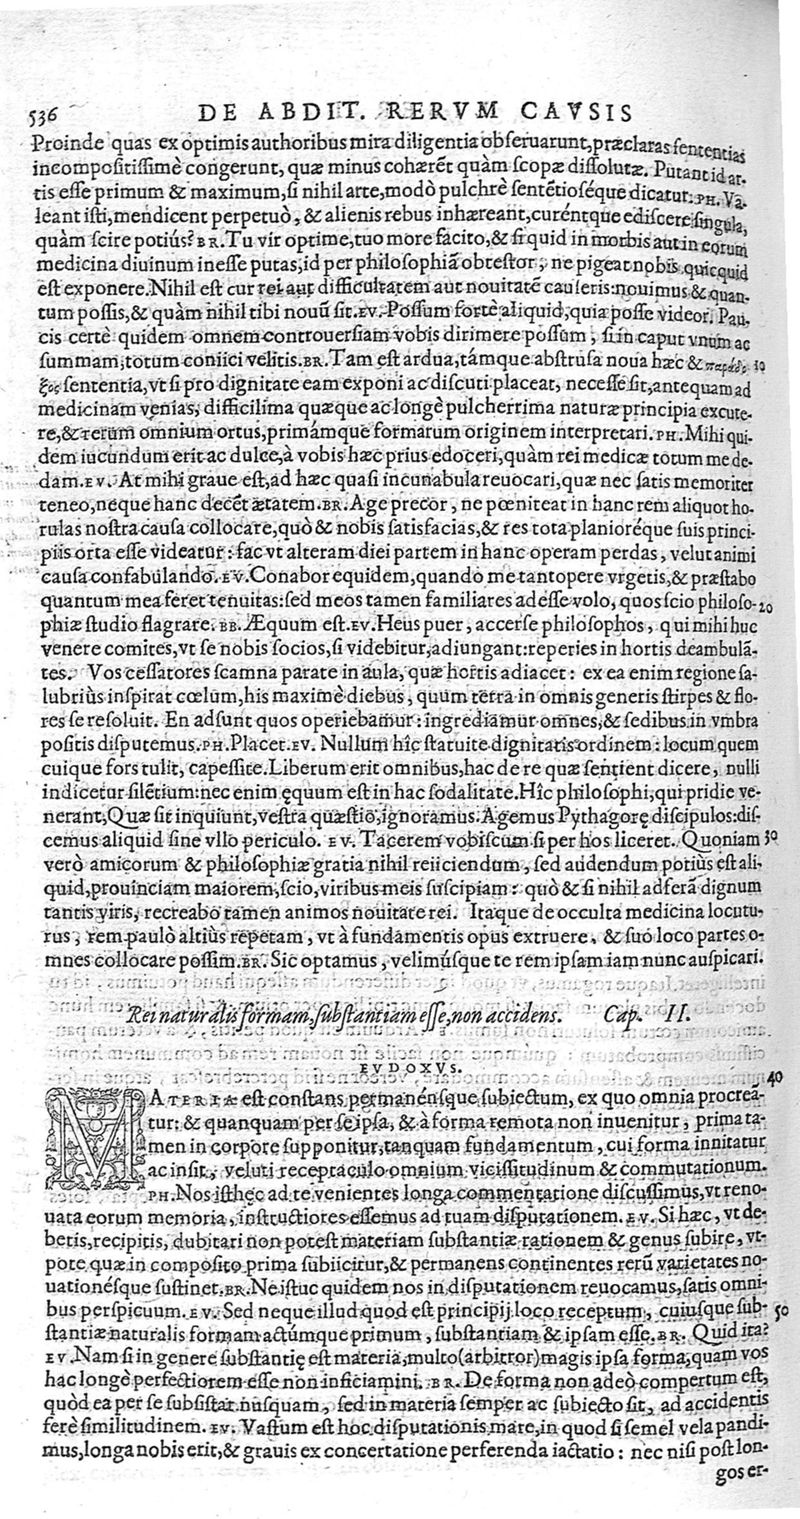 536 DE ABDIT. RERVM CAVSIS
Proinde quas ex optimis authoribus mira diligentia obſeruarunt, præclaras ſententias
incompoſitiſſimè congerunt, quæ minus cohærẽt quàm ſcopæ diſſolutæ. Putant id ar-
tis eſſe primum & maximum, ſi nihil arte, modò pulchrè ſentẽtioſéque dicatur. PH. Va-
leant iſti, mendicent perpetuò, & alienis rebus inhæreant, curéntque ediſcere ſingula,
quàm ſcire potiùs? BR. Tu vir optime, tuo more facito, & ſi quid in morbis aut in eorum
medicina diuinum ineſſe putas, id per philoſophiã obteſtor, ne pigeat nobis quicquid
eſt exponere. Nihil eſt cur rei aut difficultatem aut nouitatẽ cauſeris: nouimus & quan-
tum poſſis, & quàm nihil tibi nouũ ſit. EV. Poſſum fortè aliquid, quia poſſe videor. Pau-
cis certè quidem omnem controuerſiam vobis dirimere poſſum, ſi in caput vnum ac
ſummam, totum coniici velitis. BR. Tam eſt ardua, támque abſtruſa noua hæc & παράδο- 10
ξος ſententia, vt ſi pro dignitate eam exponi ac diſcuti placeat, neceſſe ſit, antequam ad
medicinam venias, difficilima quæque ac longè pulcherrima naturæ principia excute-
re, & rerum omnium ortus, primámque formarum originem interpretari. PH. Mihi qui-
dem iucundum erit ac dulce, à vobis hæc prius edoceri, quàm rei medicæ totum me de-
dam. EV. At mihi graue eſt, ad hæc quaſi incunabula reuocari, quæ nec ſatis memoriter
teneo, neque hanc decẽt ætatem. BR. Age precor, ne pœniteat in hanc rem aliquot ho-
rulas noſtra cauſa collocare, quò & nobis ſatisfacias, & res tota planioréque ſuis princi-
piis orta eſſe videatur: fac vt alteram diei partem in hanc operam perdas, velut animi
cauſa confabulando. EV. Conabor equidem, quando me tantopere vrgetis, & præſtabo
quantum mea feret tenuitas: ſed meos tamen familiares adeſſe volo, quos ſcio philoſo- 20
phiæ ſtudio flagrare. BB. Æquum eſt. EV. Heus puer, accerſe philoſophos, qui mihi huc
venere comites, vt ſe nobis ſocios, ſi videbitur, adiungant: reperies in hortis deambulã-
tes. Vos ceſſatores ſcamna parate in aula, quæ hortis adiacet: ex ea enim regione ſa-
lubriùs inſpirat cœlum, his maximè diebus, quum terra in omnis generis ſtirpes & flo-
res ſe reſoluit. En adſunt quos operiebamur: ingrediamur omnes, & ſedibus in vmbra
poſitis diſputemus. PH. Placet. EV. Nullum hîc ſtatuite dignitatis ordinem: locum quem
cuique fors tulit, capeſſite. Liberum erit omnibus, hac de re quæ ſentient dicere, nulli
indicetur ſilẽtium: nec enim ęquum eſt in hac ſodalitate. Hîc philoſophi, qui pridie ve-
nerant, Quæ ſit inquiunt, veſtra quæſtio, ignoramus. Agemus Pythagorę diſcipulos: diſ-
cemus aliquid ſine vllo periculo. EV. Tacerem vobiſcum ſi per hos liceret. Quoniam 30
verò amicorum & philoſophiæ gratia nihil reiiciendum, ſed audendum potiùs eſt ali-
quid, prouinciam maiorem, ſcio, viribus meis ſuſcipiam: quò & ſi nihil adferã dignum
tantis viris, recreabo tamen animos nouitate rei. Itaque de occulta medicina locutu-
rus, rem paulò altiùs repetam, vt à fundamentis opus extruere, & ſuo loco partes o-
mnes collocare poſſim. BR. Sic optamus, velimúſque te rem ipſam iam nunc auſpicari.
Rei naturalis formam, ſubſtantiam eſſe, non accidens. Cap. II.
EVDOXVS.
40
MATERIA eſt conſtans permanénſque ſubiectum, ex quo omnia procreã-
tur: & quanquam per ſe ipſa, & à forma remota non inuenitur, prima ta-
men in corpore ſupponitur, tanquam fundamentum, cui forma innitatur
ac inſit, veluti receptaculo omnium viciſſitudinum & commutationum.
PH. Nos iſthęc ad te venientes longa commentatione diſcuſſimus, vt reno-
uata eorum memoria, inſtructiores eſſemus ad tuam diſputationem. EV. Si hæc, vt de-
betis, recipitis, dubitari non poteſt materiam ſubſtantiæ rationem & genus ſubire, vt-
pote quæ in compoſito prima ſubiicitur, & permanens continentes rerũ varietates no-
uationéſque ſuſtinet. BR. Ne iſtuc quidem nos in diſputationem reuocamus, ſatis omni-
bus perſpicuum. EV. Sed neque illud quod eſt principij loco receptum, cuiuſque ſub- 50
ſtantiæ naturalis formam actúmque primum, ſubſtantiam & ipſam eſſe. BR. Quid ita?
EV. Nam ſi in genere ſubſtantię eſt materia, multo (arbitror) magis ipſa forma, quam vos
hac longè perfectiorem eſſe non inficiamini. BR. De forma non adeò compertum eſt,
quòd ea per ſe ſubſiſtat nuſquam, ſed in materia ſemper ac ſubiecto ſit, ad accidentis
ferè ſimilitudinem. EV. Vaſtum eſt hoc diſputationis mare, in quod ſi ſemel vela pandi-
mus, longa nobis erit, & grauis ex concertatione perferenda iactatio: nec niſi poſt lon-
gos er-